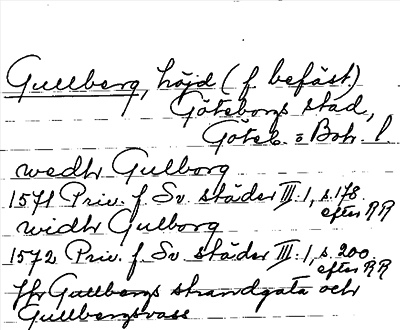 Gullberg, höjd (f. befäst.)
Göteborgs stad,
Göteb. o Boh. l.
wedhr Gulborg
1571 Priv. f. Sv. städer III. 1, s. 178.
efter RR
widhr Gulborg
1572 Priv. f. Sv städer III. 1, s. 200.
efter RR
Jfr Gullbergs strandgata och
Gullbergsvass